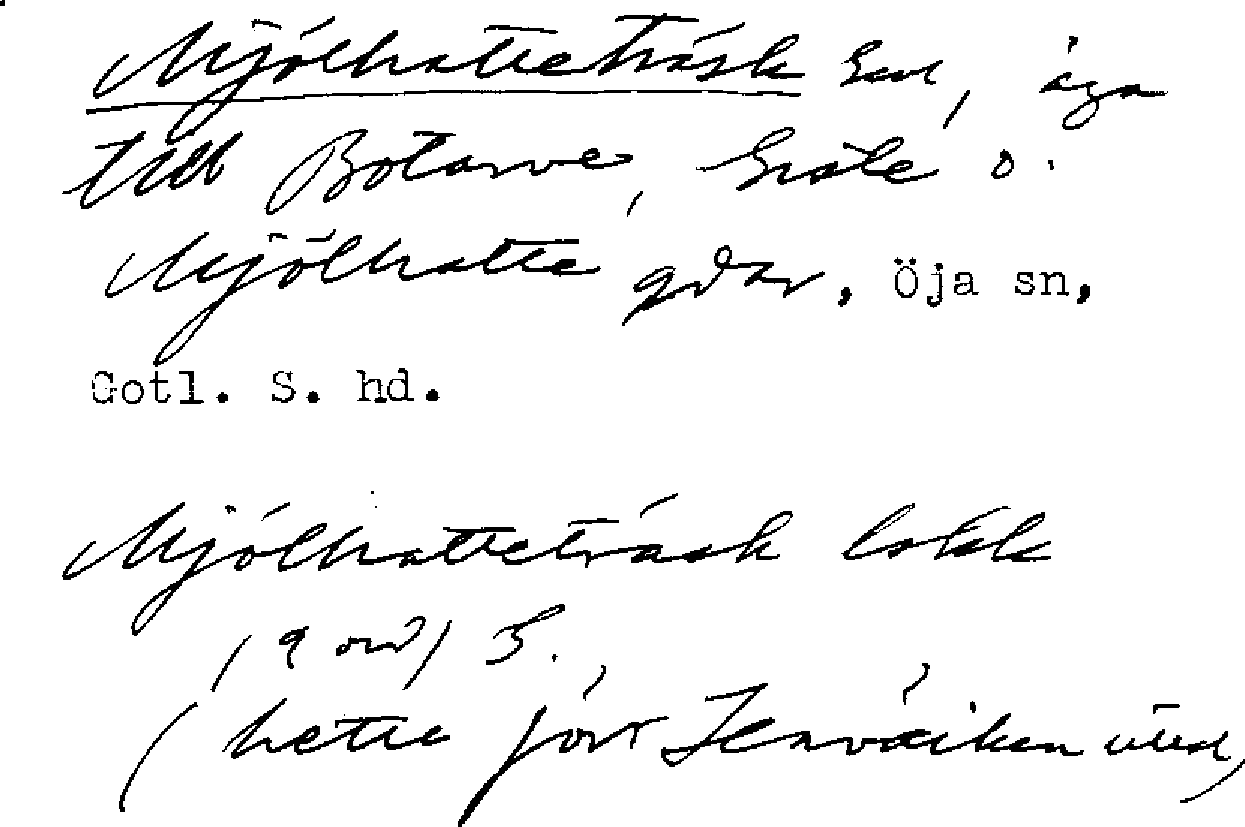 Mjölhatteträsk Ent, äga
till Botarve, Gisle o.
Mjölhatte gdar, Öja sn,
Gotl. S. hd.
Mjölhatteträsk lokk
(9 ord) S.
(hette förr Stenväiken uttal)